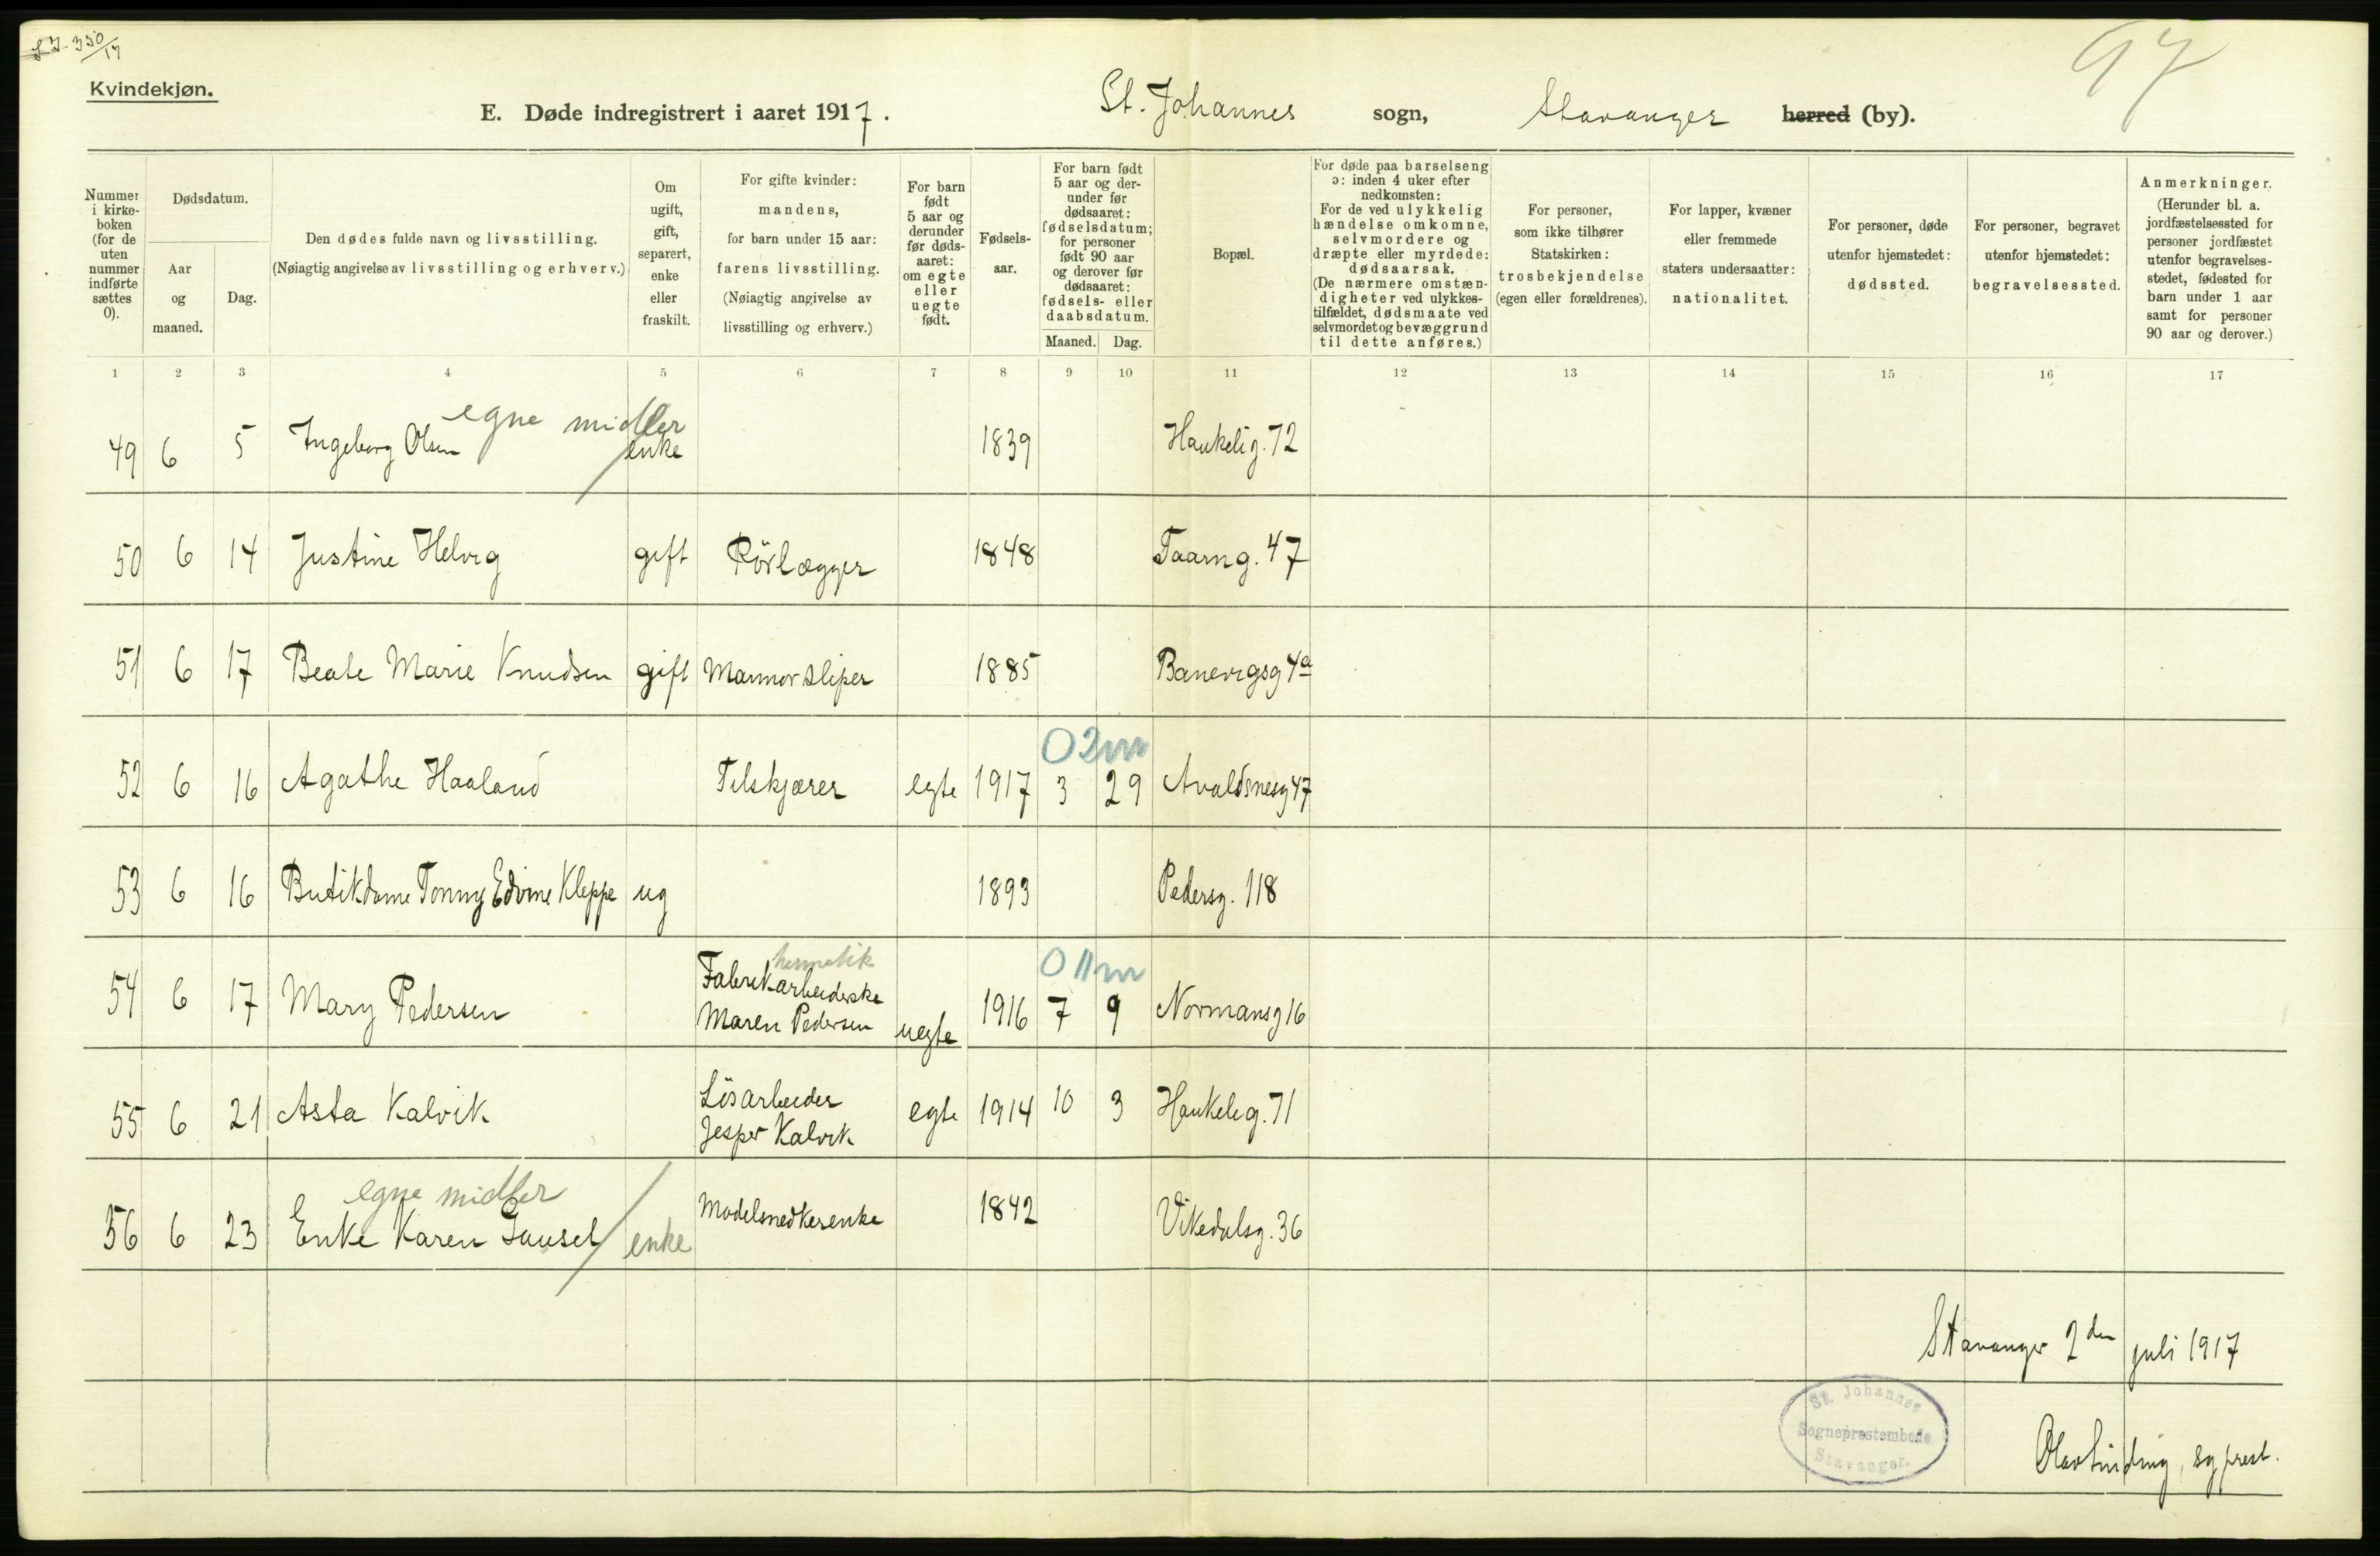 S.J. 350/17
97
Kvindekjøn.
E. Døde indregistrert i aaret 1917. St. Johannes sogn, Stavanger herred (by).
Nummer i kirkeboken (for de uten nummer indførte sættes 0).
Dødsdatum.
Aar og maaned.
Dag.
Den dødes fulde navn og livsstilling.
(Nøiagtig angivelse av livsstilling og erhverv.)
Om ugift, gift, separert, enke eller fraskilt.
For gifte kvinder: mandens, for barn under 15 aar: farens livsstilling. (Nøiagtig angivelse av livsstilling og erhverv.)
For barn født 5 aar og derunder før dødsaaret: om egte eller uegte født.
Fødselsaar.
For barn født 5 aar og derunder før dødsaaret: fødselsdatum; for personer født 90 aar og derover før dødsaaret: fødsels- eller daabsdatum.
Maaned. Dag.
Bopæl.
For døde paa barselseng ɔ: inden 4 uker efter nedkomsten: For de ved ulykkelig hændelse omkomne, selvmordere og dræpte eller myrdede: dødsaarsak. (De nærmere omstændigheter ved ulykkestilfældet, dødsmaate ved selvmordet og bevæggrund til dette anføres.)
For personer, som ikke tilhører Statskirken: trosbekjendelse (egen eller forældrenes).
For lapper, kvæner eller fremmede staters undersaatter: nationalitet.
For personer, døde utenfor hjemstedet: dødssted.
For personer, begravet utenfor hjemstedet: begravelsessted.
Anmerkninger. (Herunder bl. a. jordfæstelsessted for personer jordfæstet utenfor begravelsesstedet, fødested for barn under 1 aar samt for personer 90 aar og derover.)
1 2 3 4 5 6 7 8 9 10 11 12 13 14 15 16 17
egne midler
49 6 5 Ingeborg Olsen enke 1839 Haukelig. 72
50 6 14 Justine Helvig gift Rörlægger 1848 Taarng. 47
51 6 17 Beate Marie Knudsen gift Marmorsliper 1885 Banevigsg 4a
0 2 m
52 6 16 Agathe Haaland Tilskjærer egte 1917 3 29 Avaldsnesg 47
53 6 16 Butikdame Tonny Edvine Kleppe ug 1893 Pedersg. 118
hermetik 0 11 m
54 6 17 Mary Pedersen Fabrikarbeiderske Maren Pedersen uegte 1916 7 9 Normansg 16
55 6 21 Asta Kalvik Lösarbeider Jesper Kalvik egte 1914 10 3 Haukelig. 71
egne midler
56 6 23 Enke Karen Sausel enke Modelsnedkerenke 1842 Vikedalsg. 36
Stavanger 2den juli 1917
St. Johannes
Sogneprestembede
Stavanger.
Olav Sinding, sgprest.